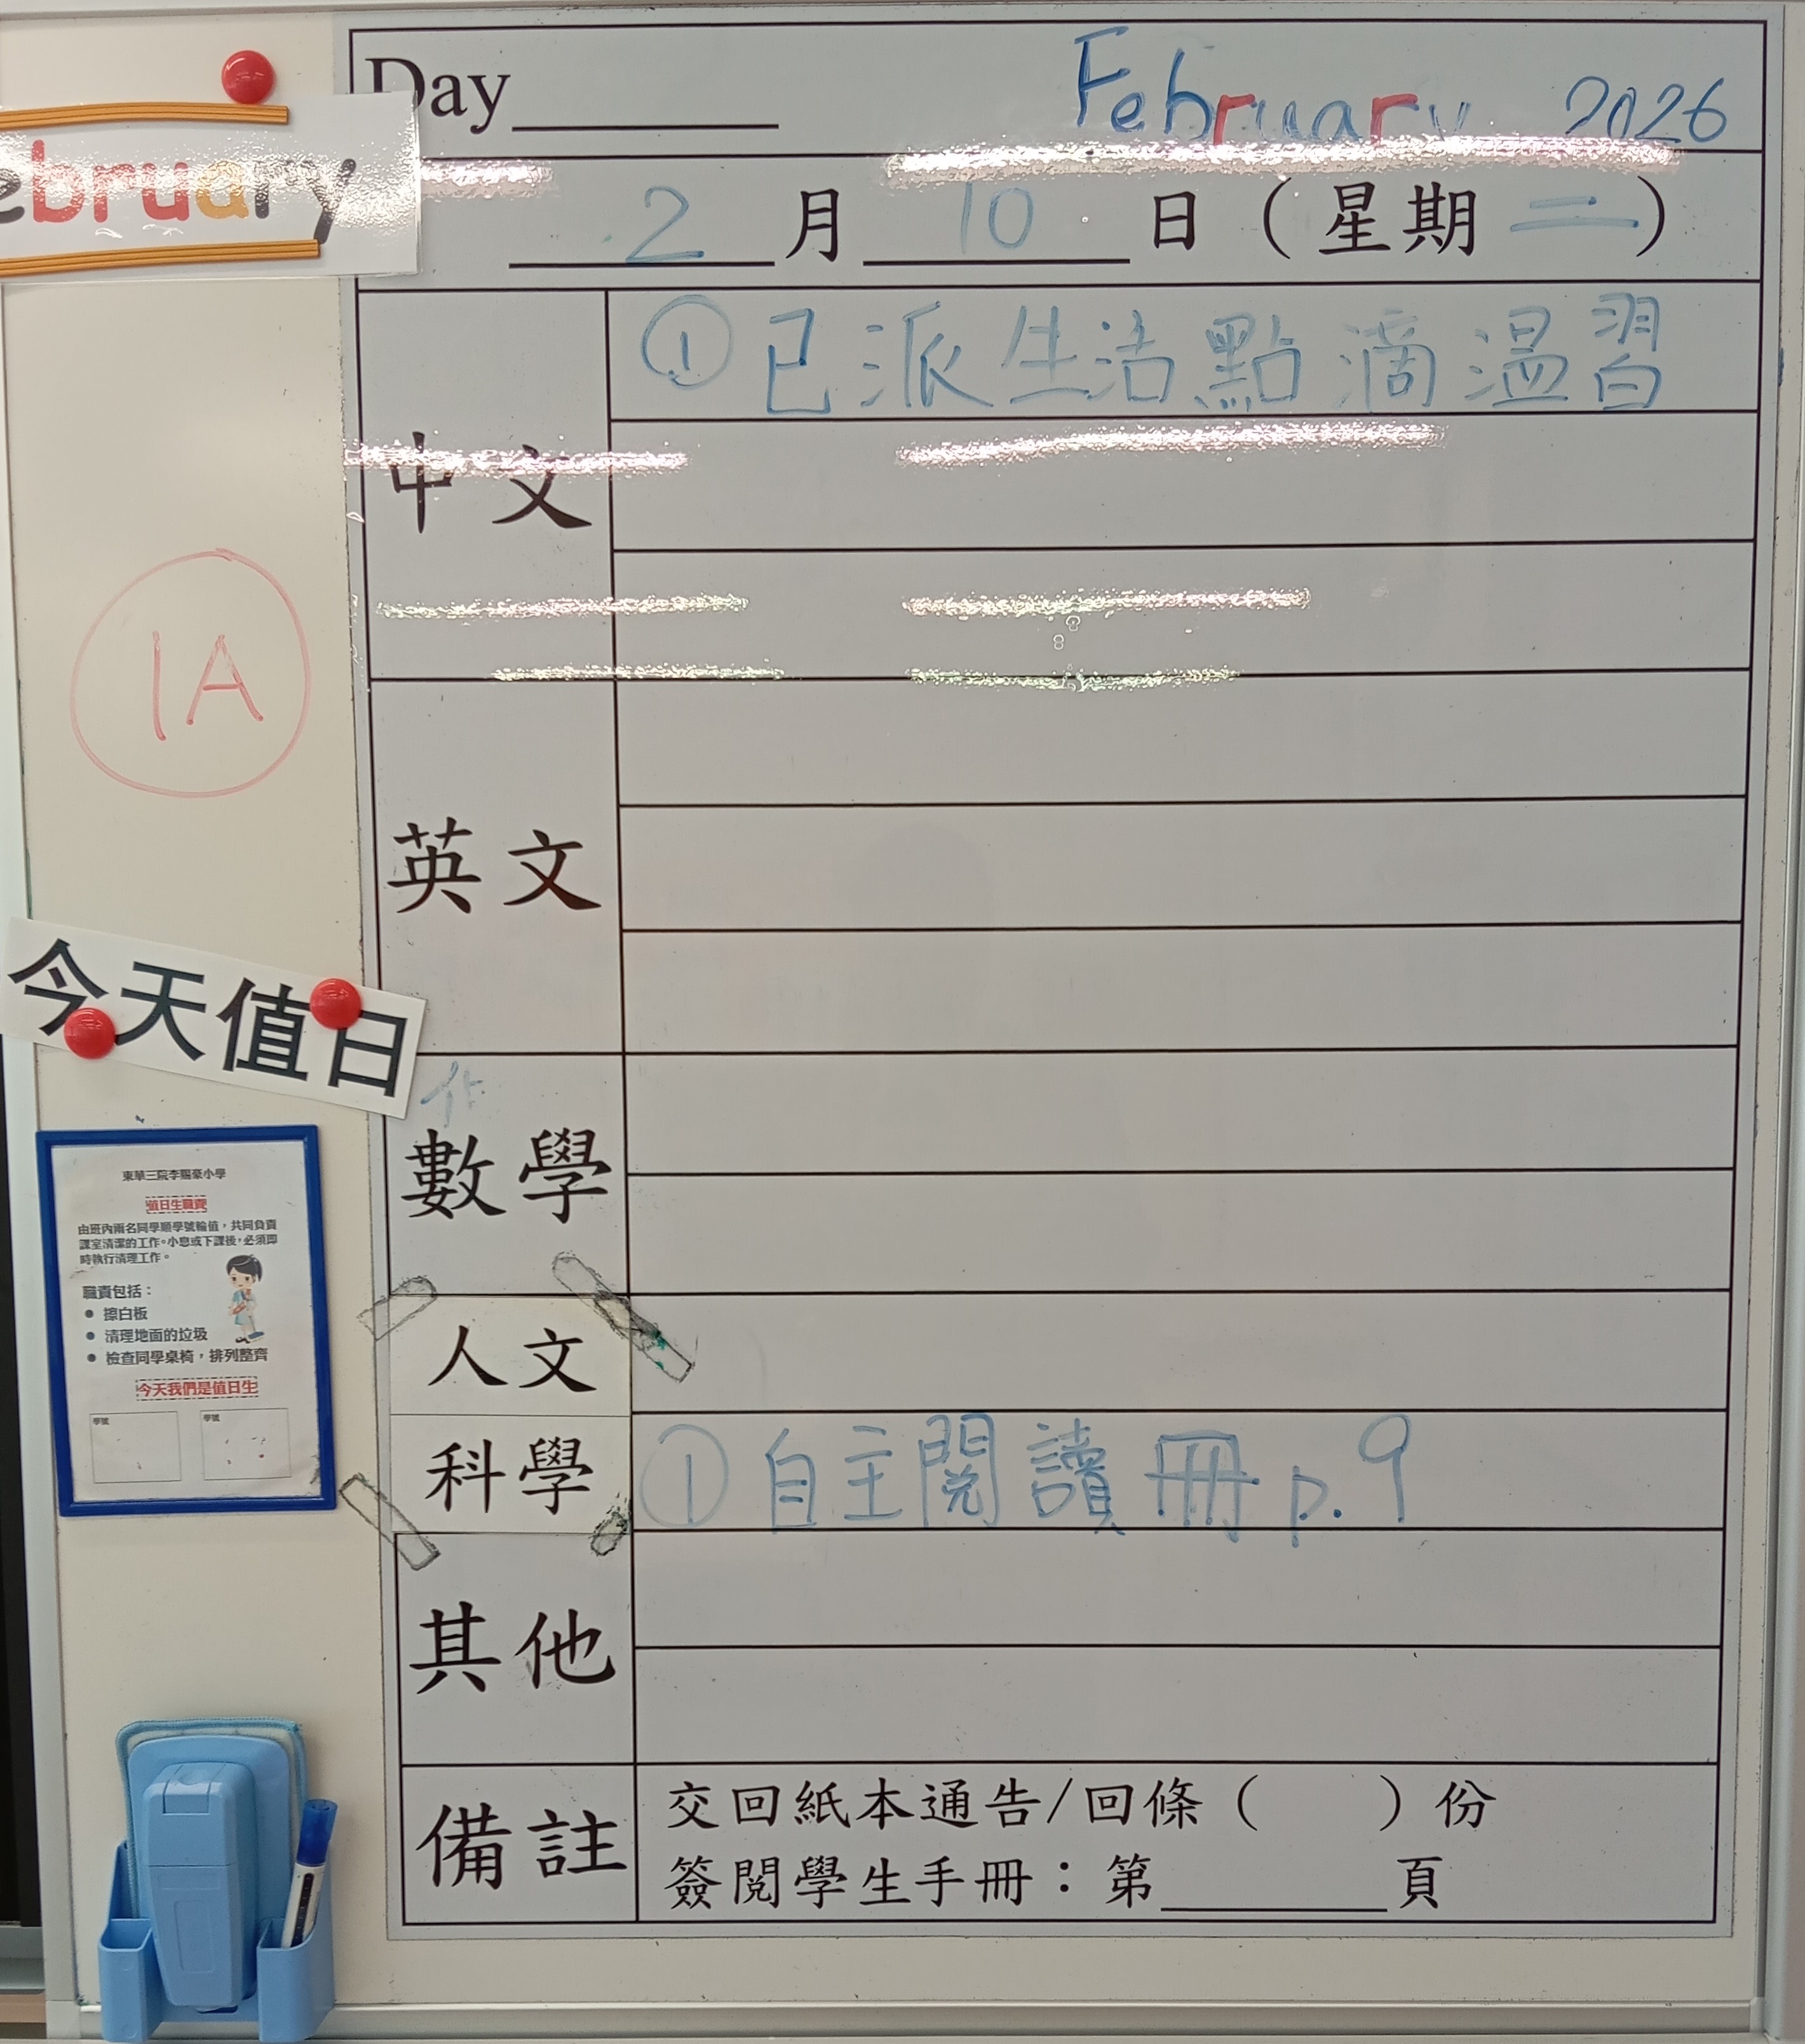 Day
February 2026
ebruary
2月10日（星期二）
中文
①已派生活點滴溫習
1A
英文
今天值日
作
數學
人文
科學
①自主閱讀冊 p.9
其他
備註
交回紙本通告/回條（　）份
簽閱學生手冊：第頁
東華三院李賜豪小學
值日生職責
由班內兩名同學順學號輪值，共同負責
課室清潔的工作。小息或下課後，必須即
時執行清理工作。
職責包括：
● 擦白板
● 清理地面的垃圾
● 檢查同學桌椅，排列整齊
今天我們是值日生
學號
學號